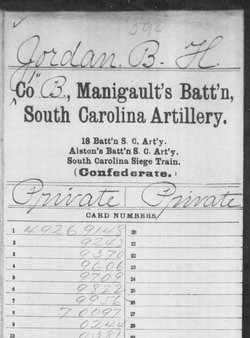 592
Jordan. B. H.
Co "B., Manigault's Batt'n,
South Carolina Artillery.
18 Batt'n S. C. Art'y.
Alston's Batt'n S. C. Art'y.
South Carolina Siege Train.
(Confederate.)
Private | Private
CARD NUMBERS
1 49269148 20
2 9243 21
3 9370 22
4 9606 23
5 9709 24
6 9822 25
7 9956 26
8 70097 27
9 0244 28
10 0381 29